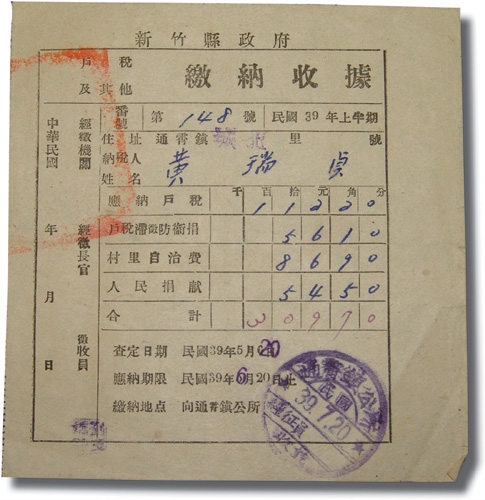 新竹縣政府
戶稅
及其他
繳納收據
番號 第148號 民國39年上半期
住址 通霄鎮 城北 里 號
納稅人姓名 黃瑞貞
千百拾元角分
應納戶稅 11220
戶稅滯徵防衛捐 5610
村里自治費 8690
人民捐献 5450
合計 30970
查定日期 民國39年5月20
應納期限 民國39年6月20日止
繳納地點 向通霄鎮公所
經徵機關
經徵長官
徵收員
中華民國 年 月 日
通霄鎮公所
民國
39.7.20
經征員
收費